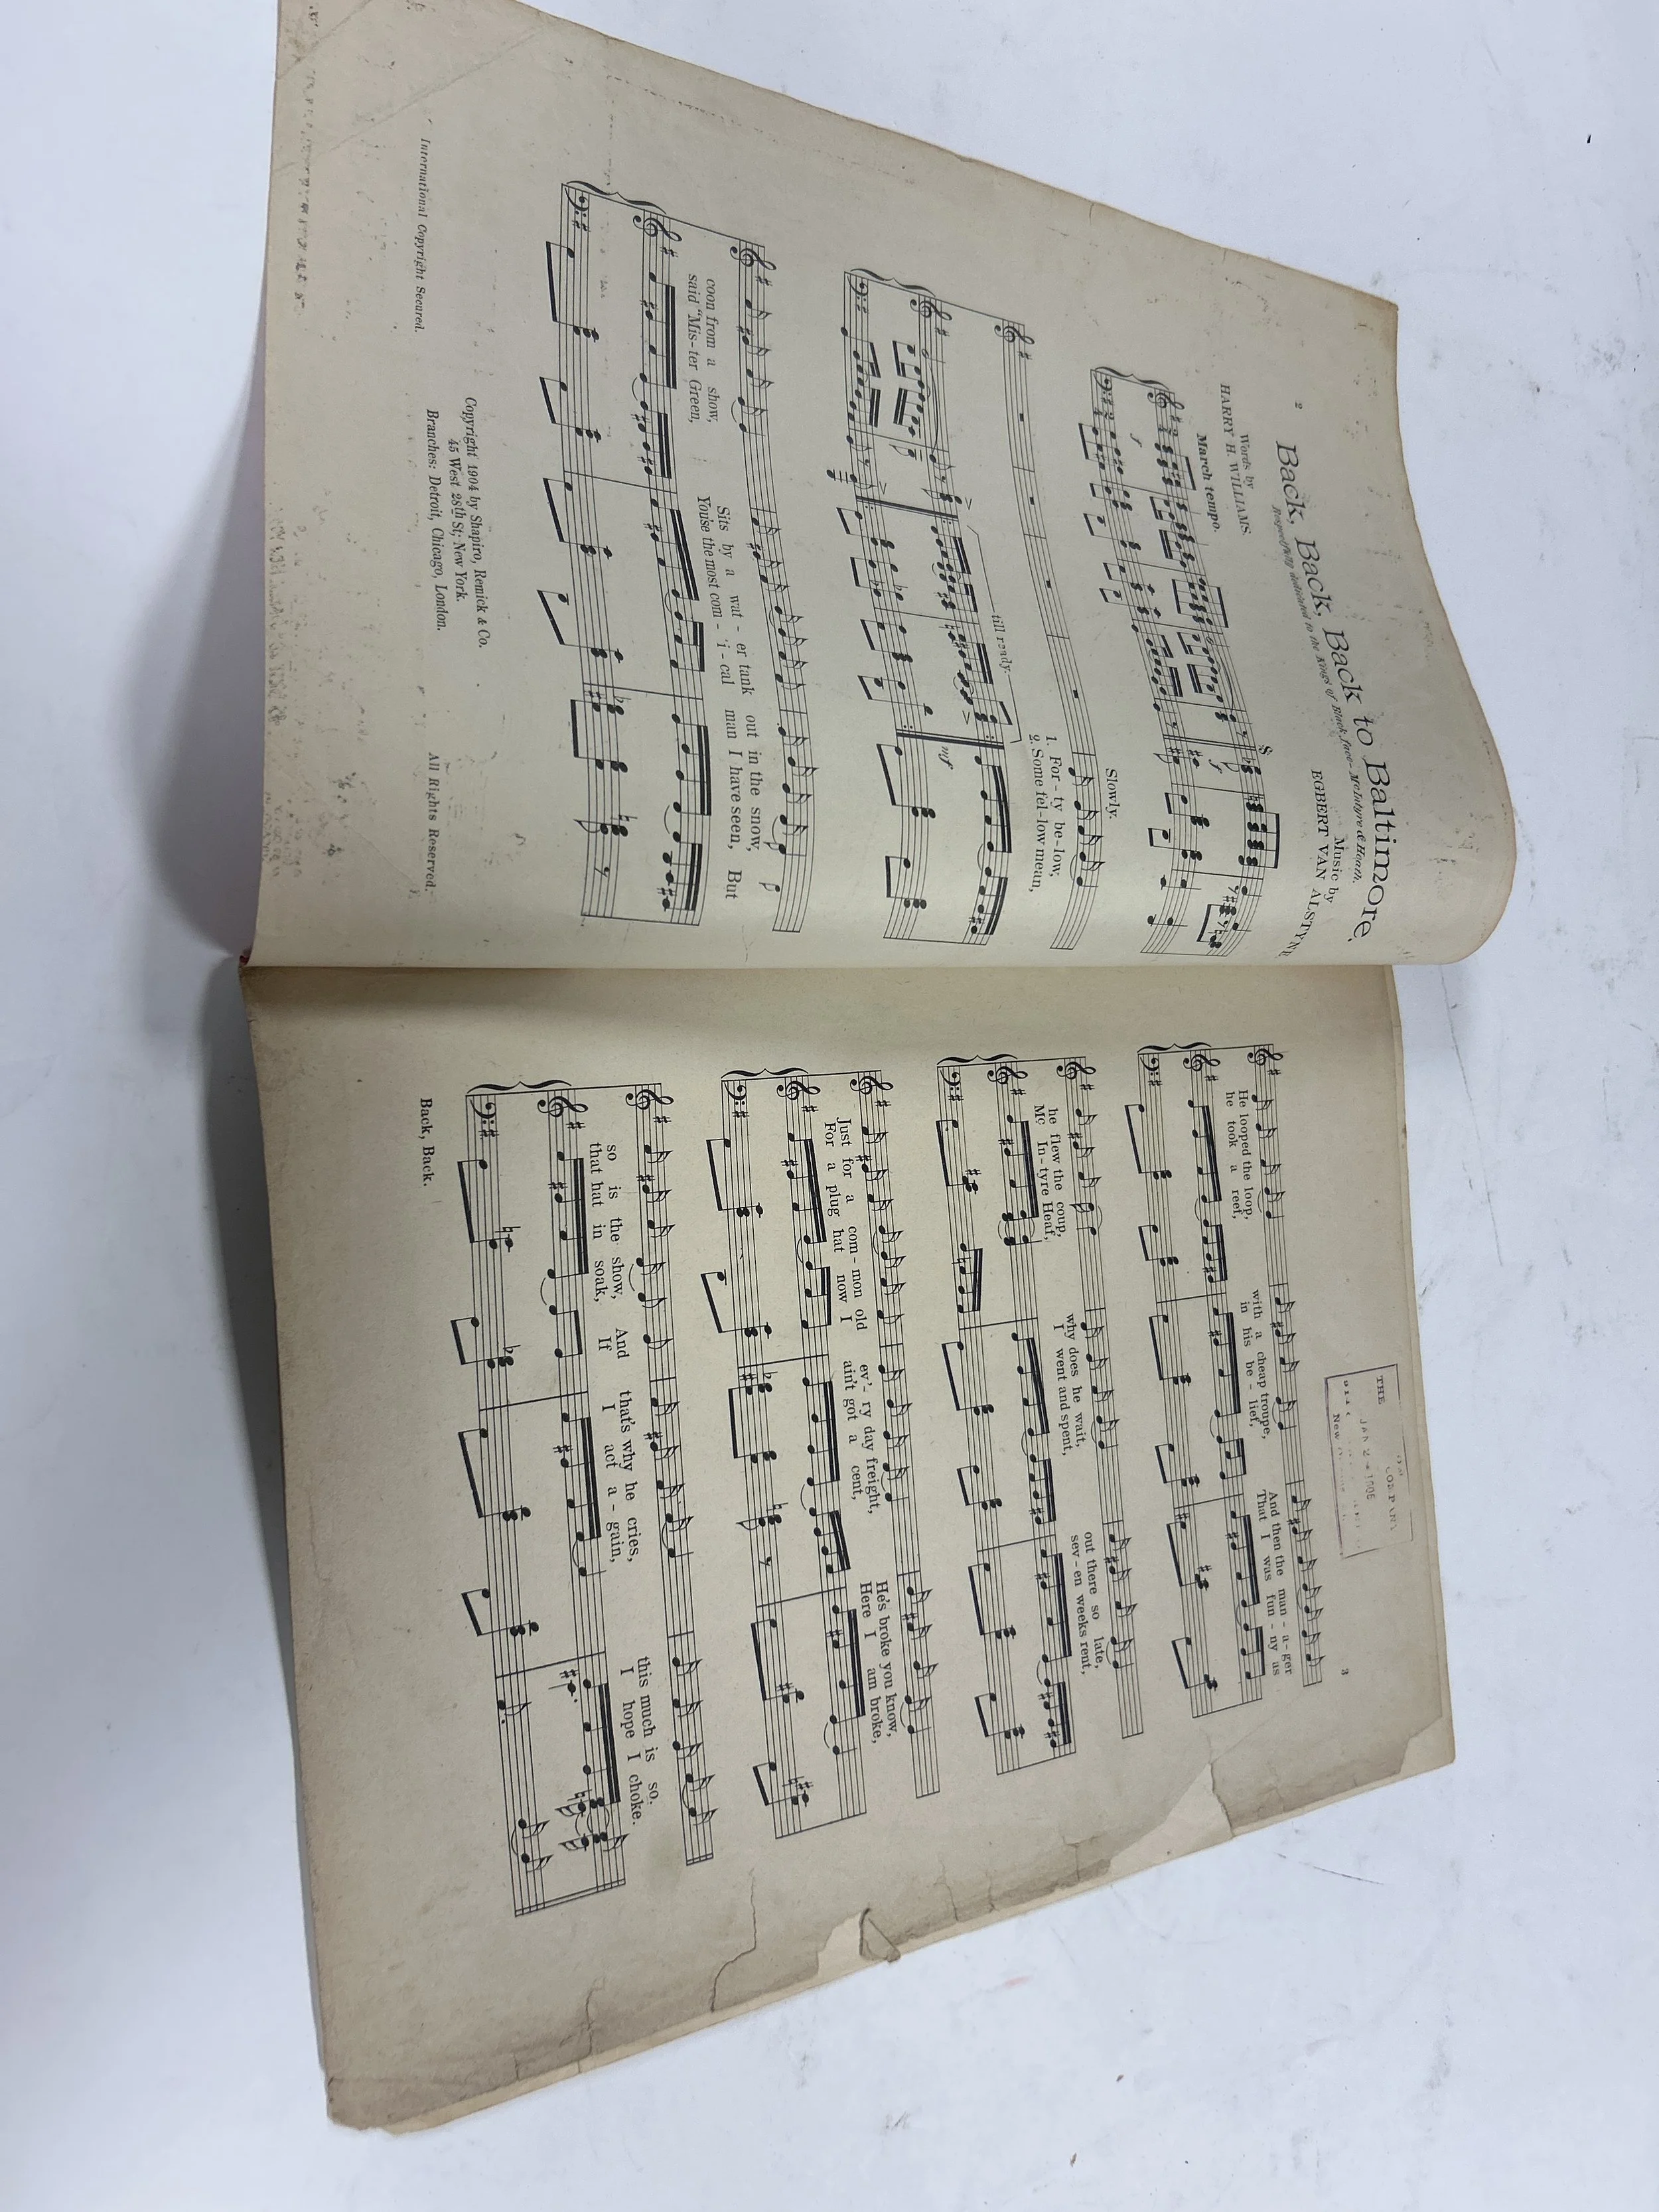 2
Back, Back, Back to Baltimore.
Respectfully dedicated to the Kings of Black face-McIntyre & Heath.
Words by
HARRY H. WILLIAMS.
Music by
EGBERT VAN ALSTYNE
March tempo.
f
f
Slowly.
till ready.
1. For-ty be-low,
2. Some fel-low mean,
mf
coon from a show, Sits by a wat-er tank out in the snow,
said "Mis-ter Green, Youse the most com-'i-cal man I have seen, But
Copyright 1904 by Shapiro, Remick & Co.
45 West 28th St; New York.
International Copyright Secured. Branches: Detroit, Chicago, London. All Rights Reserved.
3
THE
COMPANY
JAN 24 1905
New
He looped the loop, with a cheap troupe, And then the man-a-ger
he took a reef, in his be-lief, That I was fun-ny as
he flew the coup, why does he wait, out there so late,
Mc In-tyre Heaf, I went and spent, sev-en weeks rent,
Just for a com-mon old ev'-ry day freight, He's broke you know,
For a plug hat now I ain't got a cent, Here I am broke,
so is the show, And that's why he cries, this much is so.
that hat in soak, If I act a-gain, I hope I choke.
Back, Back.